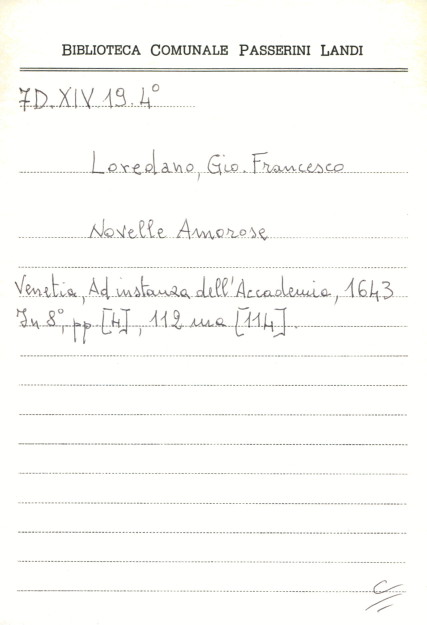 BIBLIOTECA COMUNALE PASSERINI LANDI
7D.XIV 19.4°
Loredano, Gio. Francesco
Novelle Amorose
Venetia, Ad instanza dell'Accademia, 1643
In 8°, pp [4], 112 ma [114].
C